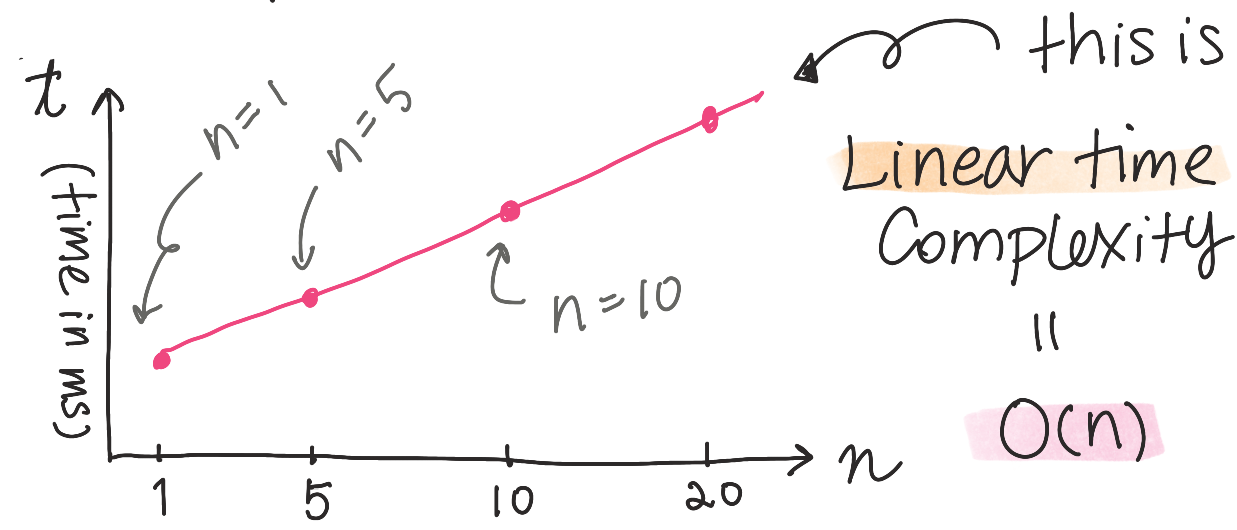 t
(time in ms)
n=1
n=5
n=10
1
5
10
20
n
this is
Linear time
Complexity
=
O(n)